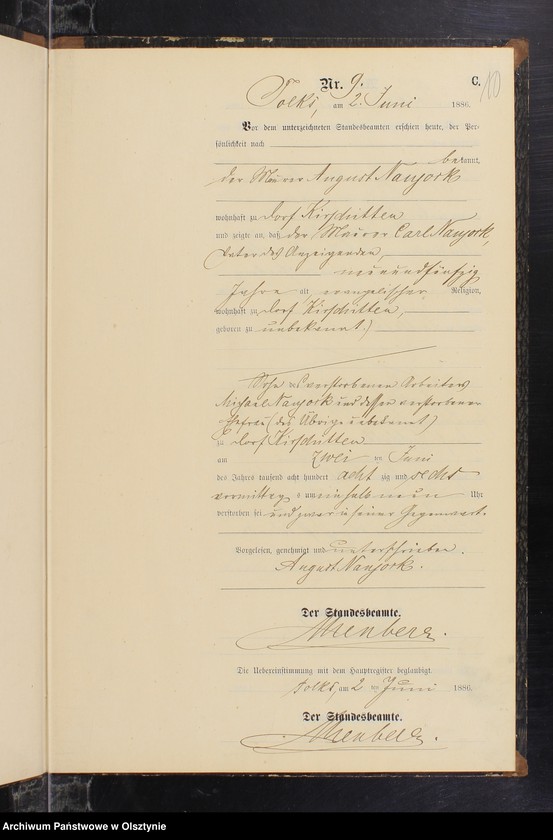 C.
10
Nr. 9.
Tolks, am 2. Juni 1886.
Vor dem unterzeichneten Standesbeamten erschien heute, der Per-
sönlichkeit nach
bekannt,
der Maurer August Nanjork
wohnhaft zu Dorf Kirschitten
und zeigte an, daß der Maurer Carl Nanjork,
Vater des Anzeigenden,
neunundfünfzig
Jahre alt, evangelischer Religion,
wohnhaft zu Dorf Kirschitten,
geboren zu unbekannt.)
Sohn des verstorbenen Arbeiters
Michael Nanjork und dessen verstorbener
Ehefrau (das Übrige unbekannt)
zu Dorf Kirschitten
am zwei ten Juni
des Jahres tausend acht hundert acht zig und sechs
vormittags um einhalb neun Uhr
verstorben sei und zwar in seiner Gegenwart.
Vorgelesen, genehmigt und unterschrieben.
August Nanjork.
Der Standesbeamte.
Die Uebereinstimmung mit dem Hauptregister beglaubigt.
Tolks, am 2 ten Juni 1886.
Der Standesbeamte.
Archiwum Państwowe w Olsztynie